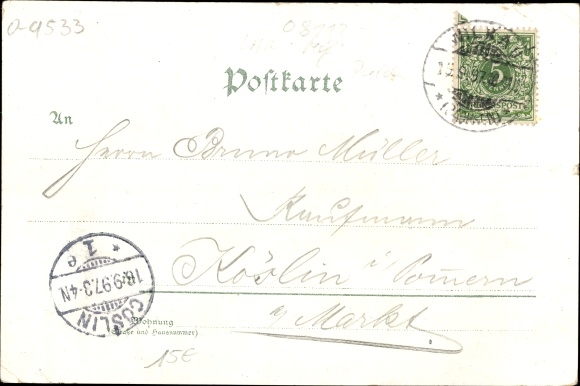 a9533
Postkarte
WILKAU
* (SACHSEN) *
5
REICHSPOST
An
Herrn Bruno Müller
Kaufmann
Köslin i/Pomern
a/Markt.
* 1 e
16/9.97.3-4N
CÖSLIN
Wohnung
(Straße und Hausnummer)
15€